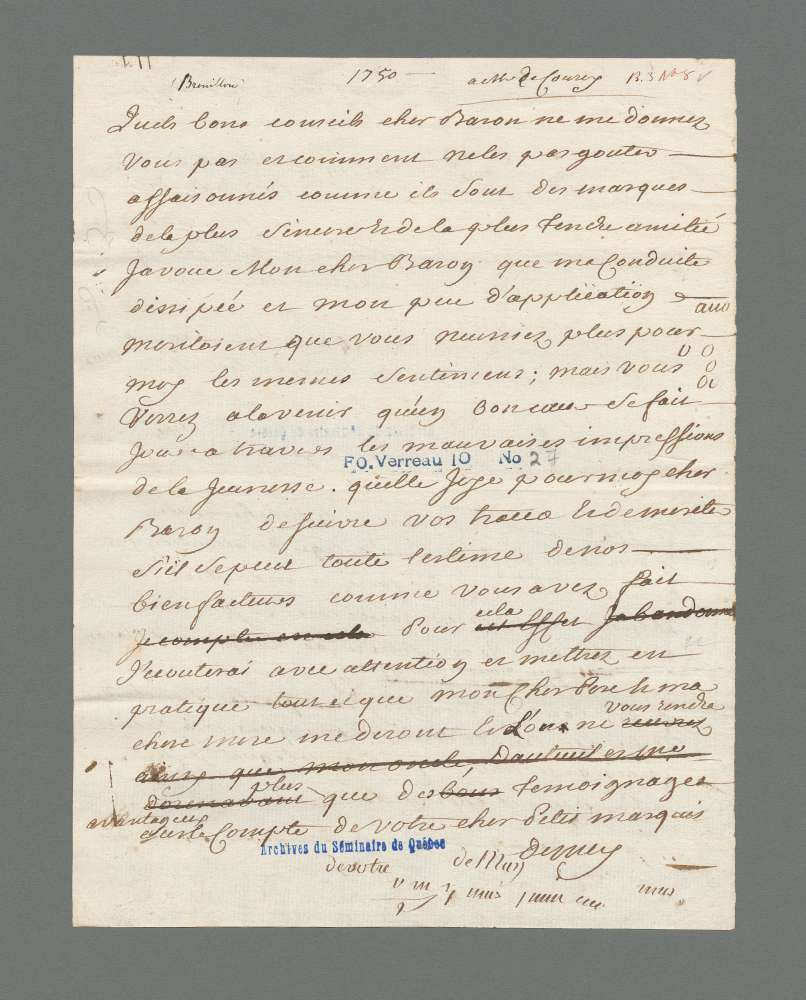 (Brouillon) 1750 — a Mr De Courcy B. 3 No 8 v
Quels bons conseils cher Baron ne me donnez
Vous pas et comment ne les pas gouter
assaisonnés comme ils sont des marques
de la plus sincere et de la plus tendre amitié
Javoue Mon cher Baron que ma Conduite
dissipée et mon peu d'application
meritoient que vous neussiez plus pour
moy les memes sentimens; mais vous
Verrez a lavenir qu'un bon coeur se fait
jour a travers les mauvaises impressions
FO. Verreau 10 No 27
de la jeunesse. quelle joye pour moy cher
Baron de suivre vos traces et de meriter
s'il se peut toute lestime de nos
bienfacteurs comme vous avez fait
je compte en cela Pour cela cet effet Jabandonne
J'ecouterai avec attention et mettrez en
pratique tout ce que mon Cher Pere et ma
chere mere me diront et L'on ne vous rendra
ainsy que mon oncle, Dauteuil et me
Dorenavant plus que des bons temoignages
avantageux sur le Compte de votre cher Petit marquis
Archives du Séminaire de Québec
de votre de Muy Demuy